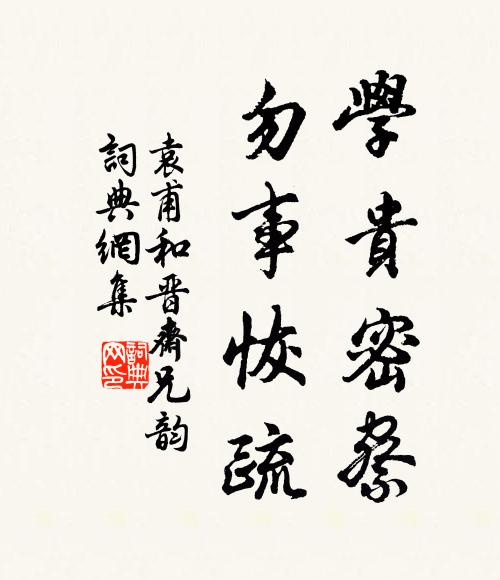 學貴密察
勿事恢疏
袁甫和晋齋兄韵
詞典網集
詞典
网印